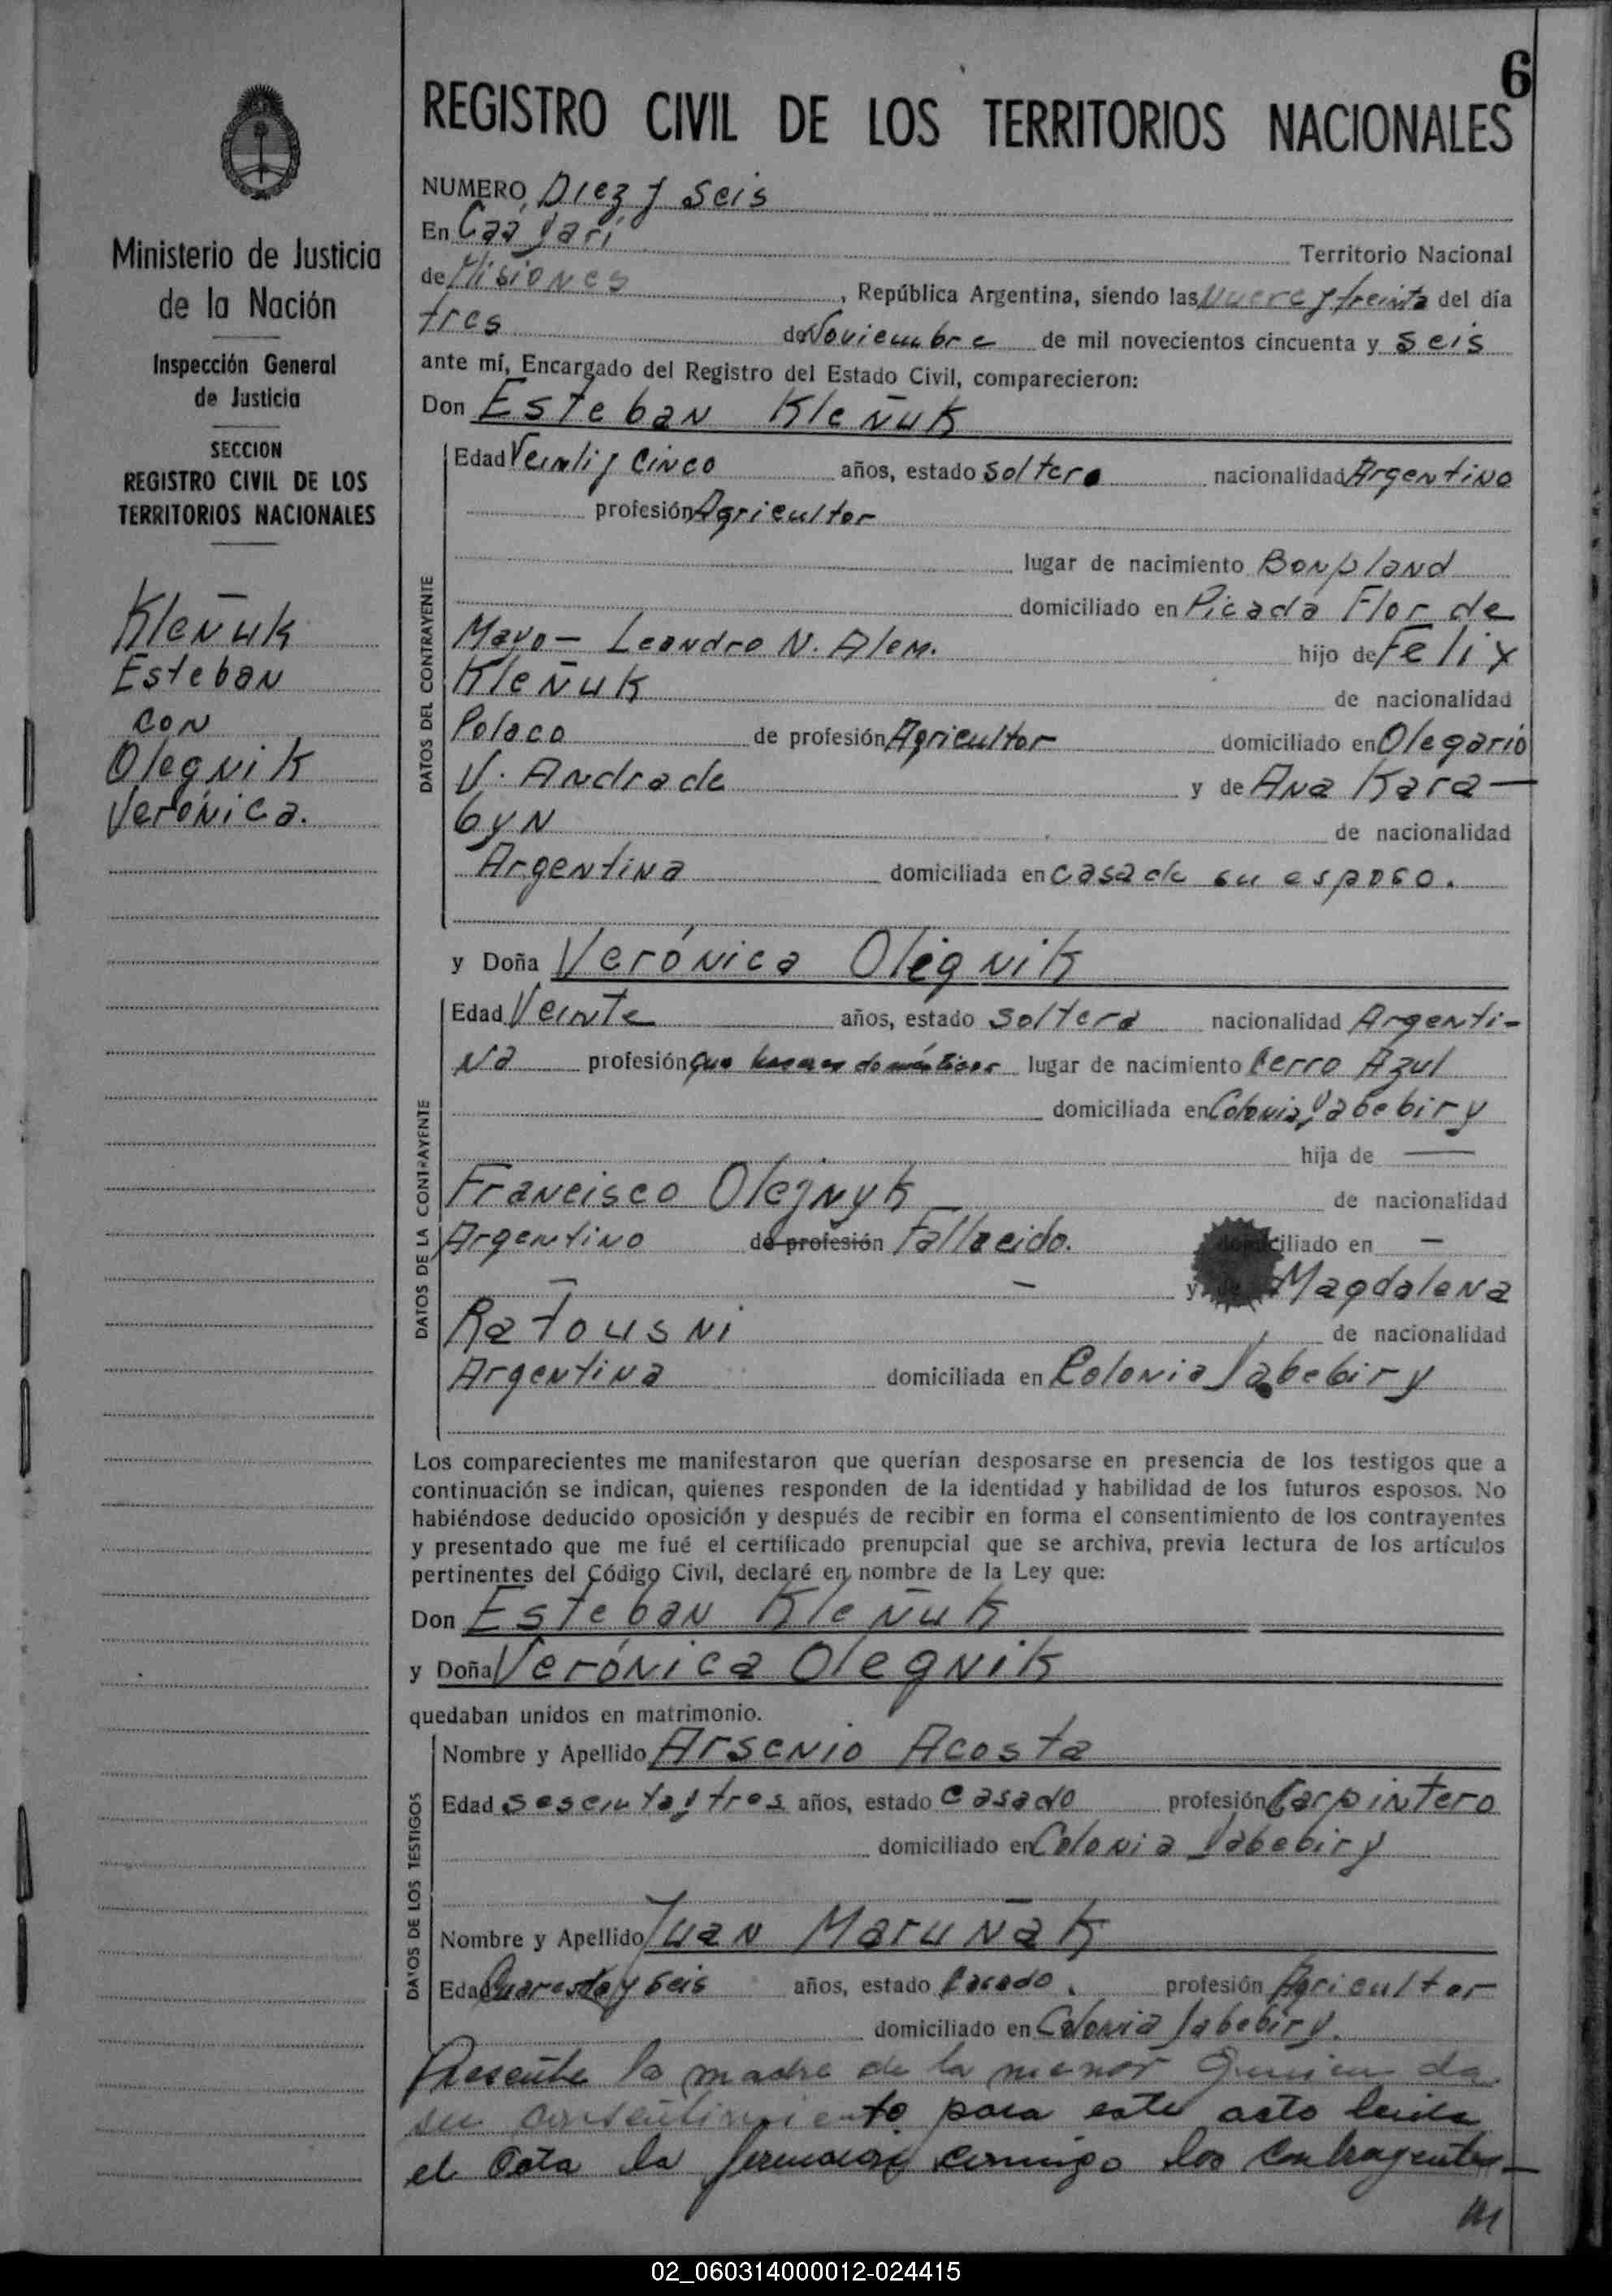 6
REGISTRO CIVIL DE LOS TERRITORIOS NACIONALES
Ministerio de Justicia
de la Nación
Inspección General
de Justicia
SECCION
REGISTRO CIVIL DE LOS
TERRITORIOS NACIONALES
Kleñuk
Esteban
con
Oleqnik
Verónica.
NUMERO Diez y Seis
En Caá Yarí Territorio Nacional
de Misiones, República Argentina, siendo las Nueve y treinta del día
tres de Noviembre de mil novecientos cincuenta y seis
ante mí, Encargado del Registro del Estado Civil, comparecieron:
Don Esteban Kleñuk
DATOS DEL CONTRAYENTE
Edad Veinti y Cinco años, estado soltero nacionalidad Argentino
profesión Agricultor
lugar de nacimiento Bonpland
domiciliado en Picada Flor de
Mayo - Leandro N. Alem. hijo de Felix
Kleñuk de nacionalidad
Polaco de profesión Agricultor domiciliado en Olegario
V. Andrade y de Ana Kara-
byn de nacionalidad
Argentina domiciliada en casa de su esposo.
y Doña Verónica Oleqnik
DATOS DE LA CONTRAYENTE
Edad Veinte años, estado soltera nacionalidad Argenti-
na profesión que haceres domésticos lugar de nacimiento Cerro Azul
domiciliada en Colonia Yabebiry
hija de —
Francisco Olejnyk de nacionalidad
Argentino de profesión Fallecido. domiciliado en —
— y de Magdalena
Ratousni de nacionalidad
Argentina domiciliada en Colonia Yabebiry
Los comparecientes me manifestaron que querían desposarse en presencia de los testigos que a
continuación se indican, quienes responden de la identidad y habilidad de los futuros esposos. No
habiéndose deducido oposición y después de recibir en forma el consentimiento de los contrayentes
y presentado que me fué el certificado prenupcial que se archiva, previa lectura de los artículos
pertinentes del Código Civil, declaré en nombre de la Ley que:
Don Esteban Kleñuk
y Doña Verónica Oleqnik
quedaban unidos en matrimonio.
DATOS DE LOS TESTIGOS
Nombre y Apellido Arsenio Acosta
Edad sesenta y tres años, estado casado profesión Carpintero
domiciliado en Colonia Yabebiry
Nombre y Apellido Juan Maruñak
Edad Cuarenta y seis años, estado Casado. profesión Agricultor
domiciliado en Colonia Yabebiry.
Presente la madre de la menor quien da
su consentimiento para este acto leida
el acta la firmaron conmigo los contrayentes-
02_060314000012-024415